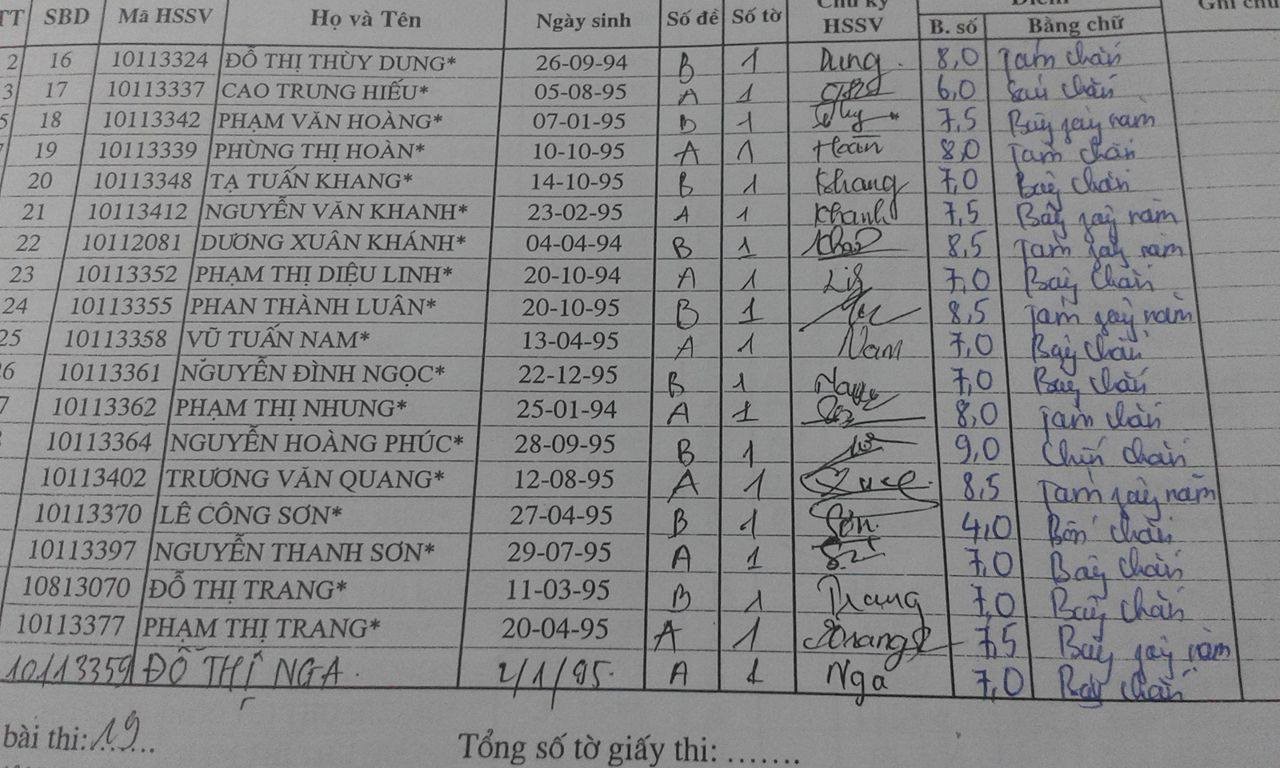 TT SBD Mã HSSV Họ và Tên Ngày sinh Số đề Số tờ Chữ ký HSSV Điểm B. số Bằng chữ Ghi chú
2 16 10113324 ĐỖ THỊ THÙY DUNG* 26-09-94 B 1 Dung 8,0 Tám chẵn
3 17 10113337 CAO TRUNG HIẾU* 05-08-95 A 1 6,0 Sáu chẵn
5 18 10113342 PHẠM VĂN HOÀNG* 07-01-95 B 1 7,5 Bảy rảy năm
19 10113339 PHÙNG THỊ HOÀN* 10-10-95 A 1 Hoàn 8,0 Tám chẵn
20 10113348 TẠ TUẤN KHANG* 14-10-95 B 1 Khang 7,0 Bảy chẵn
21 10113412 NGUYỄN VĂN KHANH* 23-02-95 A 1 Khanh 7,5 Bảy rảy năm
22 10112081 DƯƠNG XUÂN KHÁNH* 04-04-94 B 1 8,5 Tám rảy năm
23 10113352 PHẠM THỊ DIỆU LINH* 20-10-94 A 1 7,0 Bảy chẵn
24 10113355 PHAN THÀNH LUÂN* 20-10-95 B 1 8,5 Tám rảy năm
25 10113358 VŨ TUẤN NAM* 13-04-95 A 1 Nam 7,0 Bảy chẵn
26 10113361 NGUYỄN ĐÌNH NGỌC* 22-12-95 B 1 7,0 Bảy chẵn
7 10113362 PHẠM THỊ NHUNG* 25-01-94 A 1 8,0 Tám chẵn
10113364 NGUYỄN HOÀNG PHÚC* 28-09-95 B 1 9,0 Chín chẵn
10113402 TRƯƠNG VĂN QUANG* 12-08-95 A 1 8,5 Tám rảy năm
10113370 LÊ CÔNG SƠN* 27-04-95 B 1 Sơn 4,0 Bốn chẵn
10113397 NGUYỄN THANH SƠN* 29-07-95 A 1 7,0 Bảy chẵn
10813070 ĐỖ THỊ TRANG* 11-03-95 B 1 Trang 7,0 Bảy chẵn
10113377 PHẠM THỊ TRANG* 20-04-95 A 1 7,5 Bảy rảy năm
10113359 ĐỖ THỊ NGA 2/1/95 A 1 Nga 7,0 Bảy chẵn
bài thi: 19 Tổng số tờ giấy thi: .......